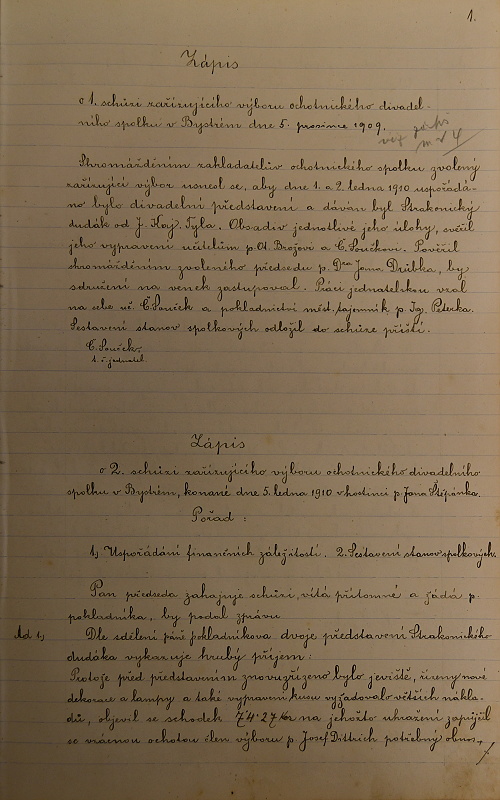 1.
Zápis
o 1. schůzi zařizujícího výboru ochotnického divadel-
ního spolku v Bystrém dne 5. prosince 1909.
Shromážděním zakladatelův ochotnického spolku zvolený
zařizující výbor usnesl se, aby dne 1. a 2. ledna 1910 uspořádá-
no bylo divadelní představení a dáván byl Strakonický
dudák od J. Kaj. Tyla. Obsadiv jednotlivé jeho úlohy, svěřil
jeho vypravení učitelům p. Ot. Brojovi a Č. Součkovi. Pověřil
shromážděním zvoleného předsedu p. Dra Jana Drübka, by
sdružení na venek zastupoval. Práci jednatelskou vzal
na sebe uč. Č. Souček a pokladnictví měst. tajemník p. Ig. Peterka.
Sestavení stanov spolkových odložil do schůze příští.
Č. Souček,
t. č. jednatel.
Zápis
o 2. schůzi zařizujícího výboru ochotnického divadelního
spolku v Bystrém, konané dne 5. ledna 1910 v hostinci p. Jana Štěpánka.
Pořad:
1, Uspořádání finančních záležitostí. 2. Sestavení stanov spolkových.
Pan předseda zahajuje schůzi, vítá přítomné a žádá p.
pokladníka, by podal zprávu
Ad 1, Dle sdělení páně pokladníkova dvoje představení Strakonického
dudáka vykazuje hrubý příjem:
Protože před představením znovuzřízeno bylo jeviště, řízeny nové
dekorace a lampy a také vypravení kusu vyžadovalo větších nákla-
dů, objevil se schodek 74·27 Kor na jehožto uhražení zapůjčil
se vzácnou ochotou člen výboru p. Josef Dittrich potřebný obnos,